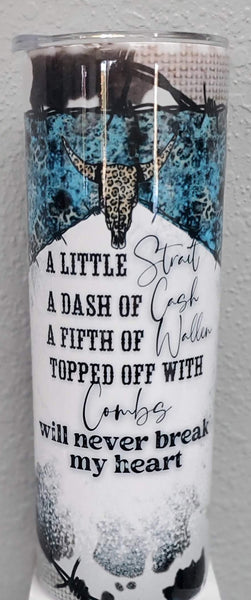 A LITTLE Strait
A DASH OF Cash
A FIFTH OF Wallen
TOPPED OFF WITH
Combs
will never break
my heart